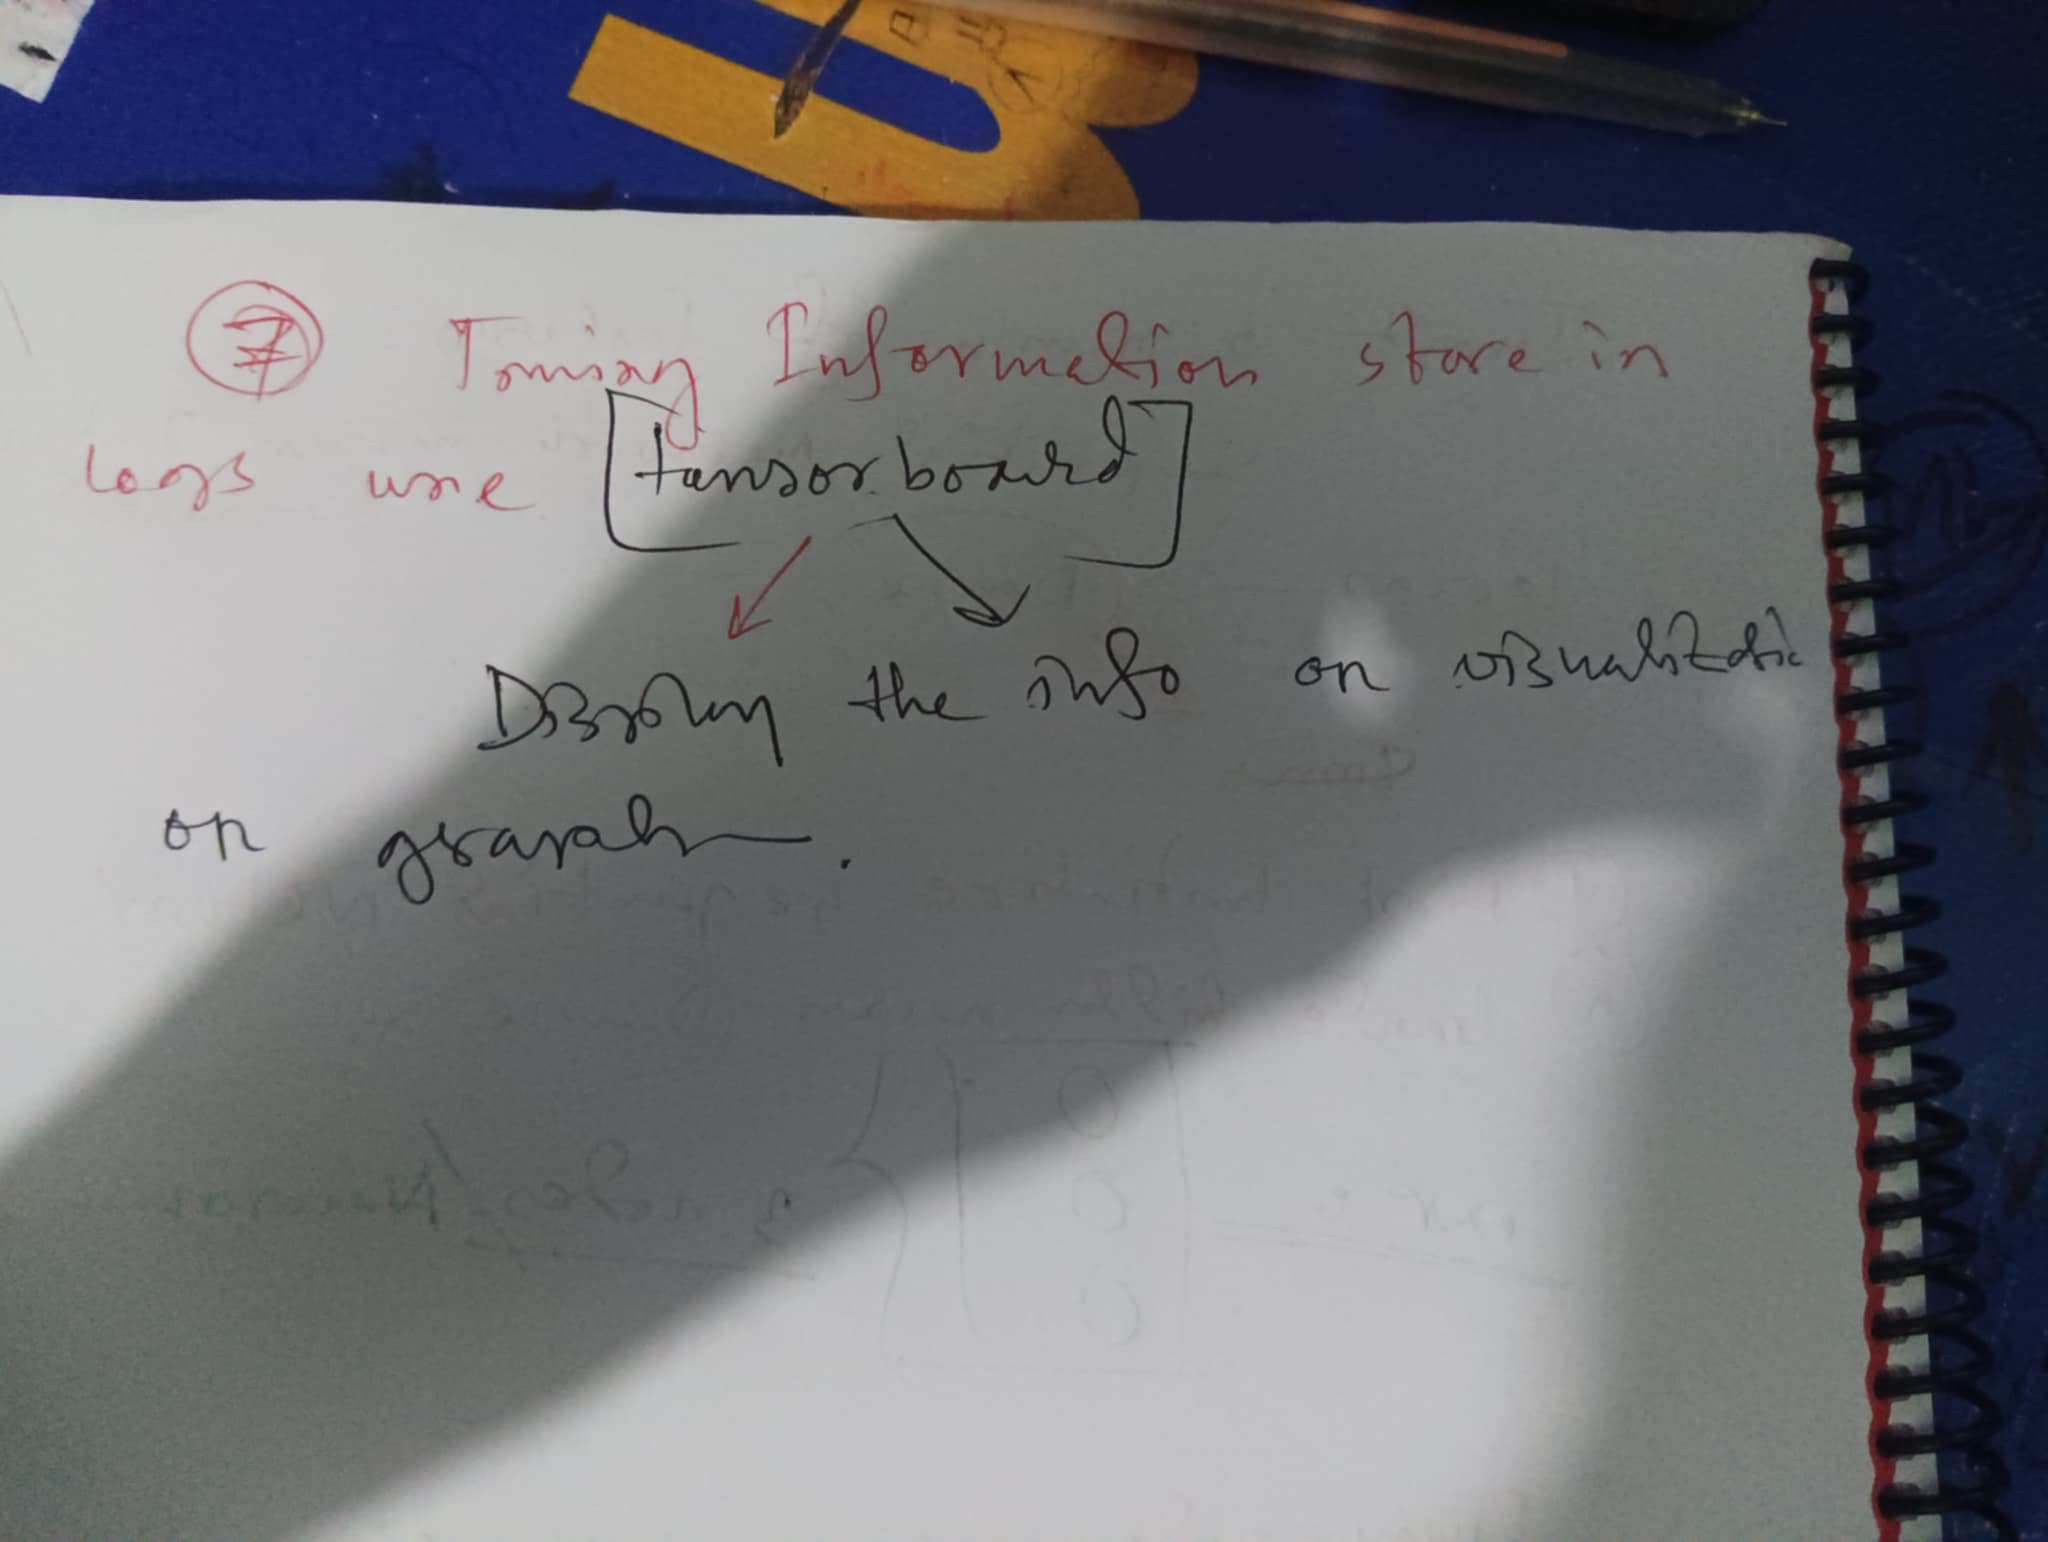 ⑦ Traning Information store in
logs use [tensorboard]
Display the info on visualizatio
on graph.